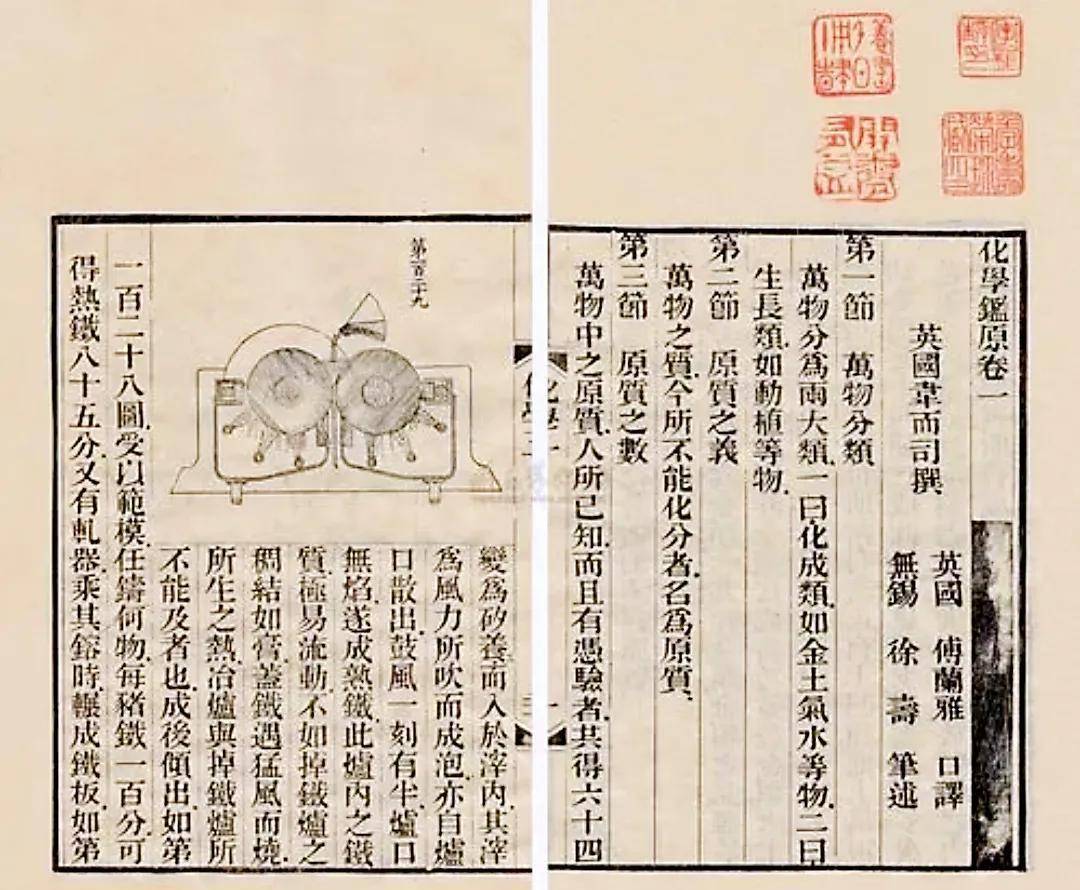 化學鑑原卷一
英國韋而司撰
英國 傅蘭雅 口譯
無錫 徐壽 筆述
第一節 萬物分類
萬物分為兩大類一曰化成類如金土氣水等物二曰
生長類如動植等物
第二節 原質之義
萬物之質今所不能化分者名為原質
第三節 原質之數
萬物中之原質人所已知而且有憑驗者共得六十四
變為矽養而入於滓內其滓
為風力所吹而成泡亦自爐
口散出鼓風一刻有半爐口
無焰遂成熟鐵此爐內之鐵
質極易流動不如掉鐵爐之
稠結如膏蓋鐵遇猛風而燒
所生之熱冶爐與掉鐵爐所
不能及者也成後傾出如第
第百三十九
一百二十八圖受以範模任鑄何物每豬鐵一百分可
得熱鐵八十五分又有軋器乘其鎔時輾成鐵板如第